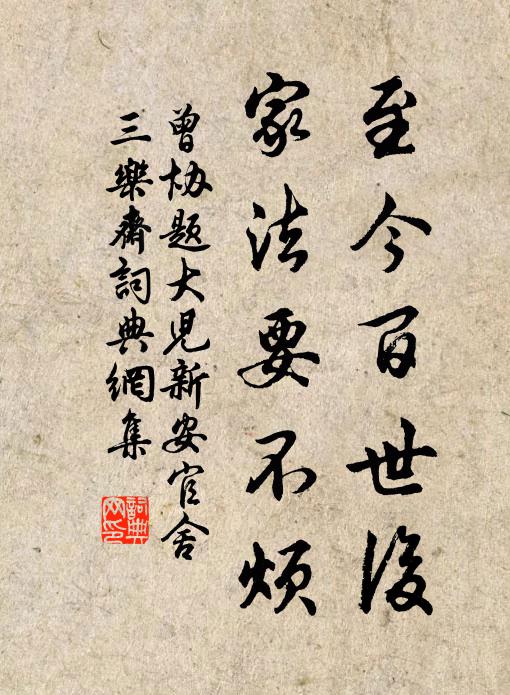 至今百世後
家法要不煩
曾协題大児新安官舍
三樂齋詞典網集
詞典
网印